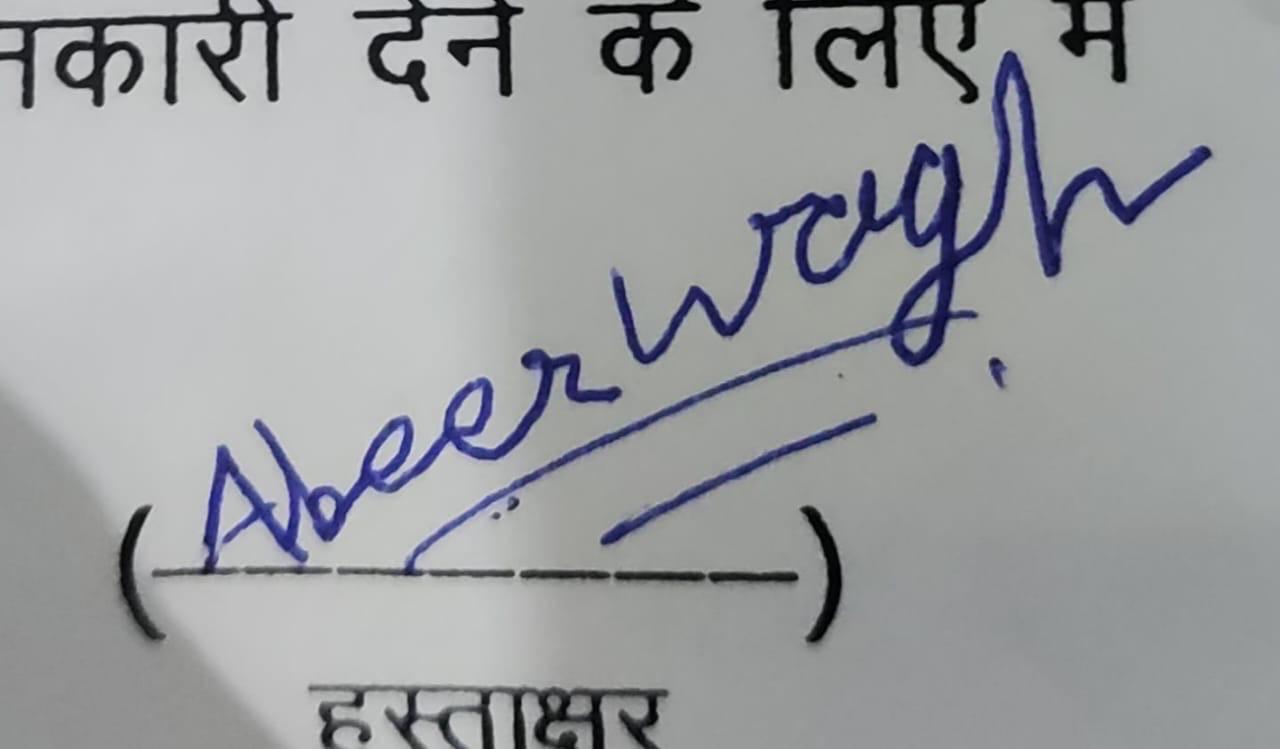 नकारी देने के लिए म
Abeer Wagh
(_ _ _ _ _ _ _)
हस्ताक्षर